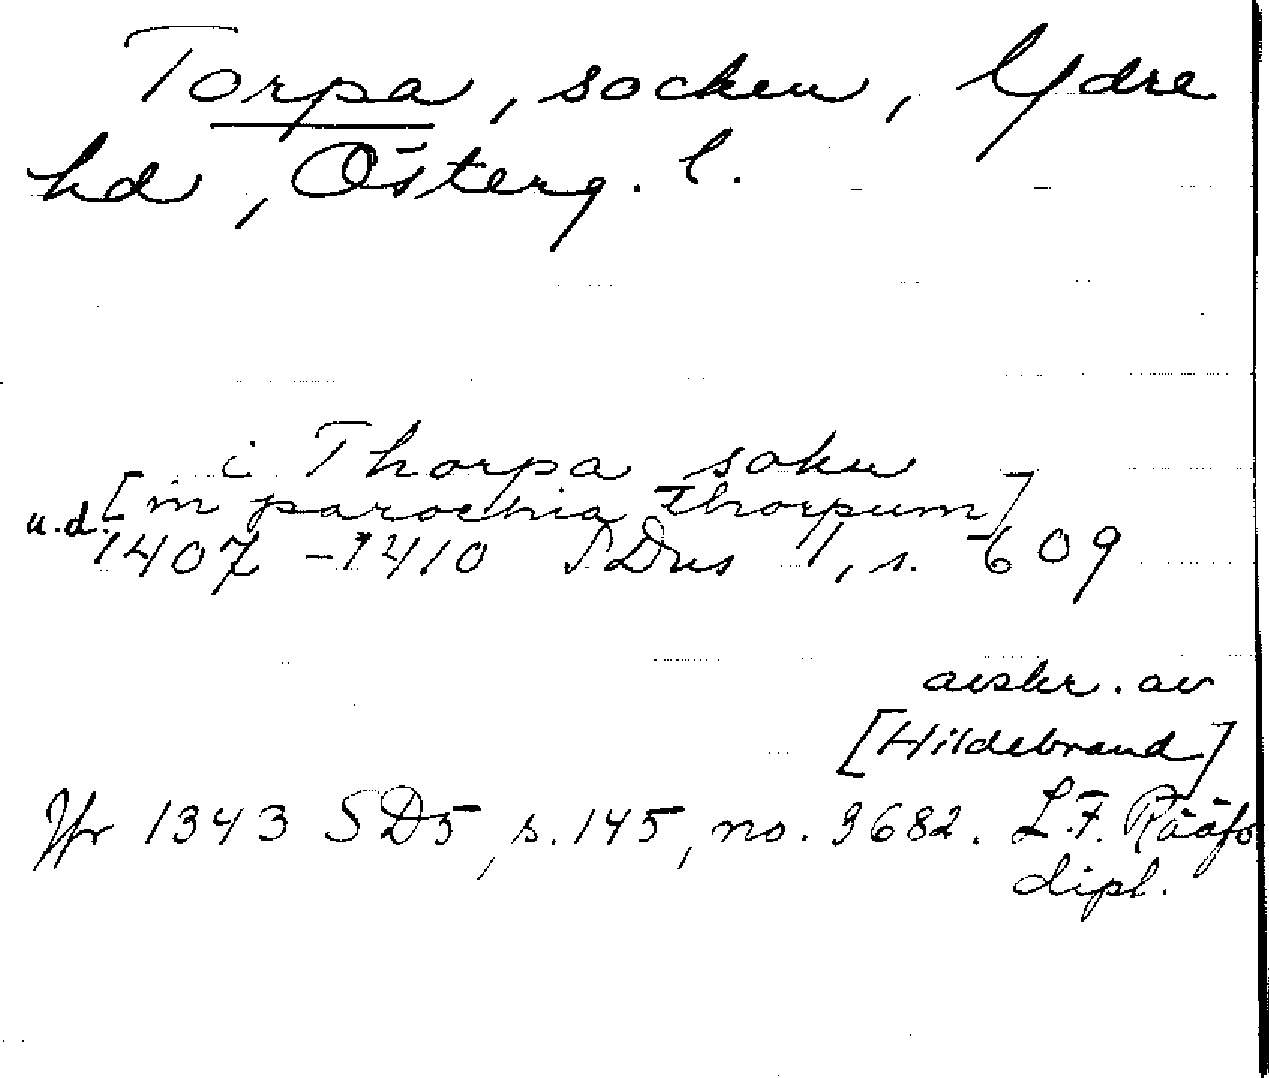 Torpa, socken, Ydre
hd, Österg. l.
i Thorpa sokn
[in parochia Thorpum]
u.d. 1407 - 1410 SDns 1, s. 609
avskr. av
[Hildebrand]
Jfr 1343 SD5, s. 145, no. 3682. L.F. Rääfs
dipl.